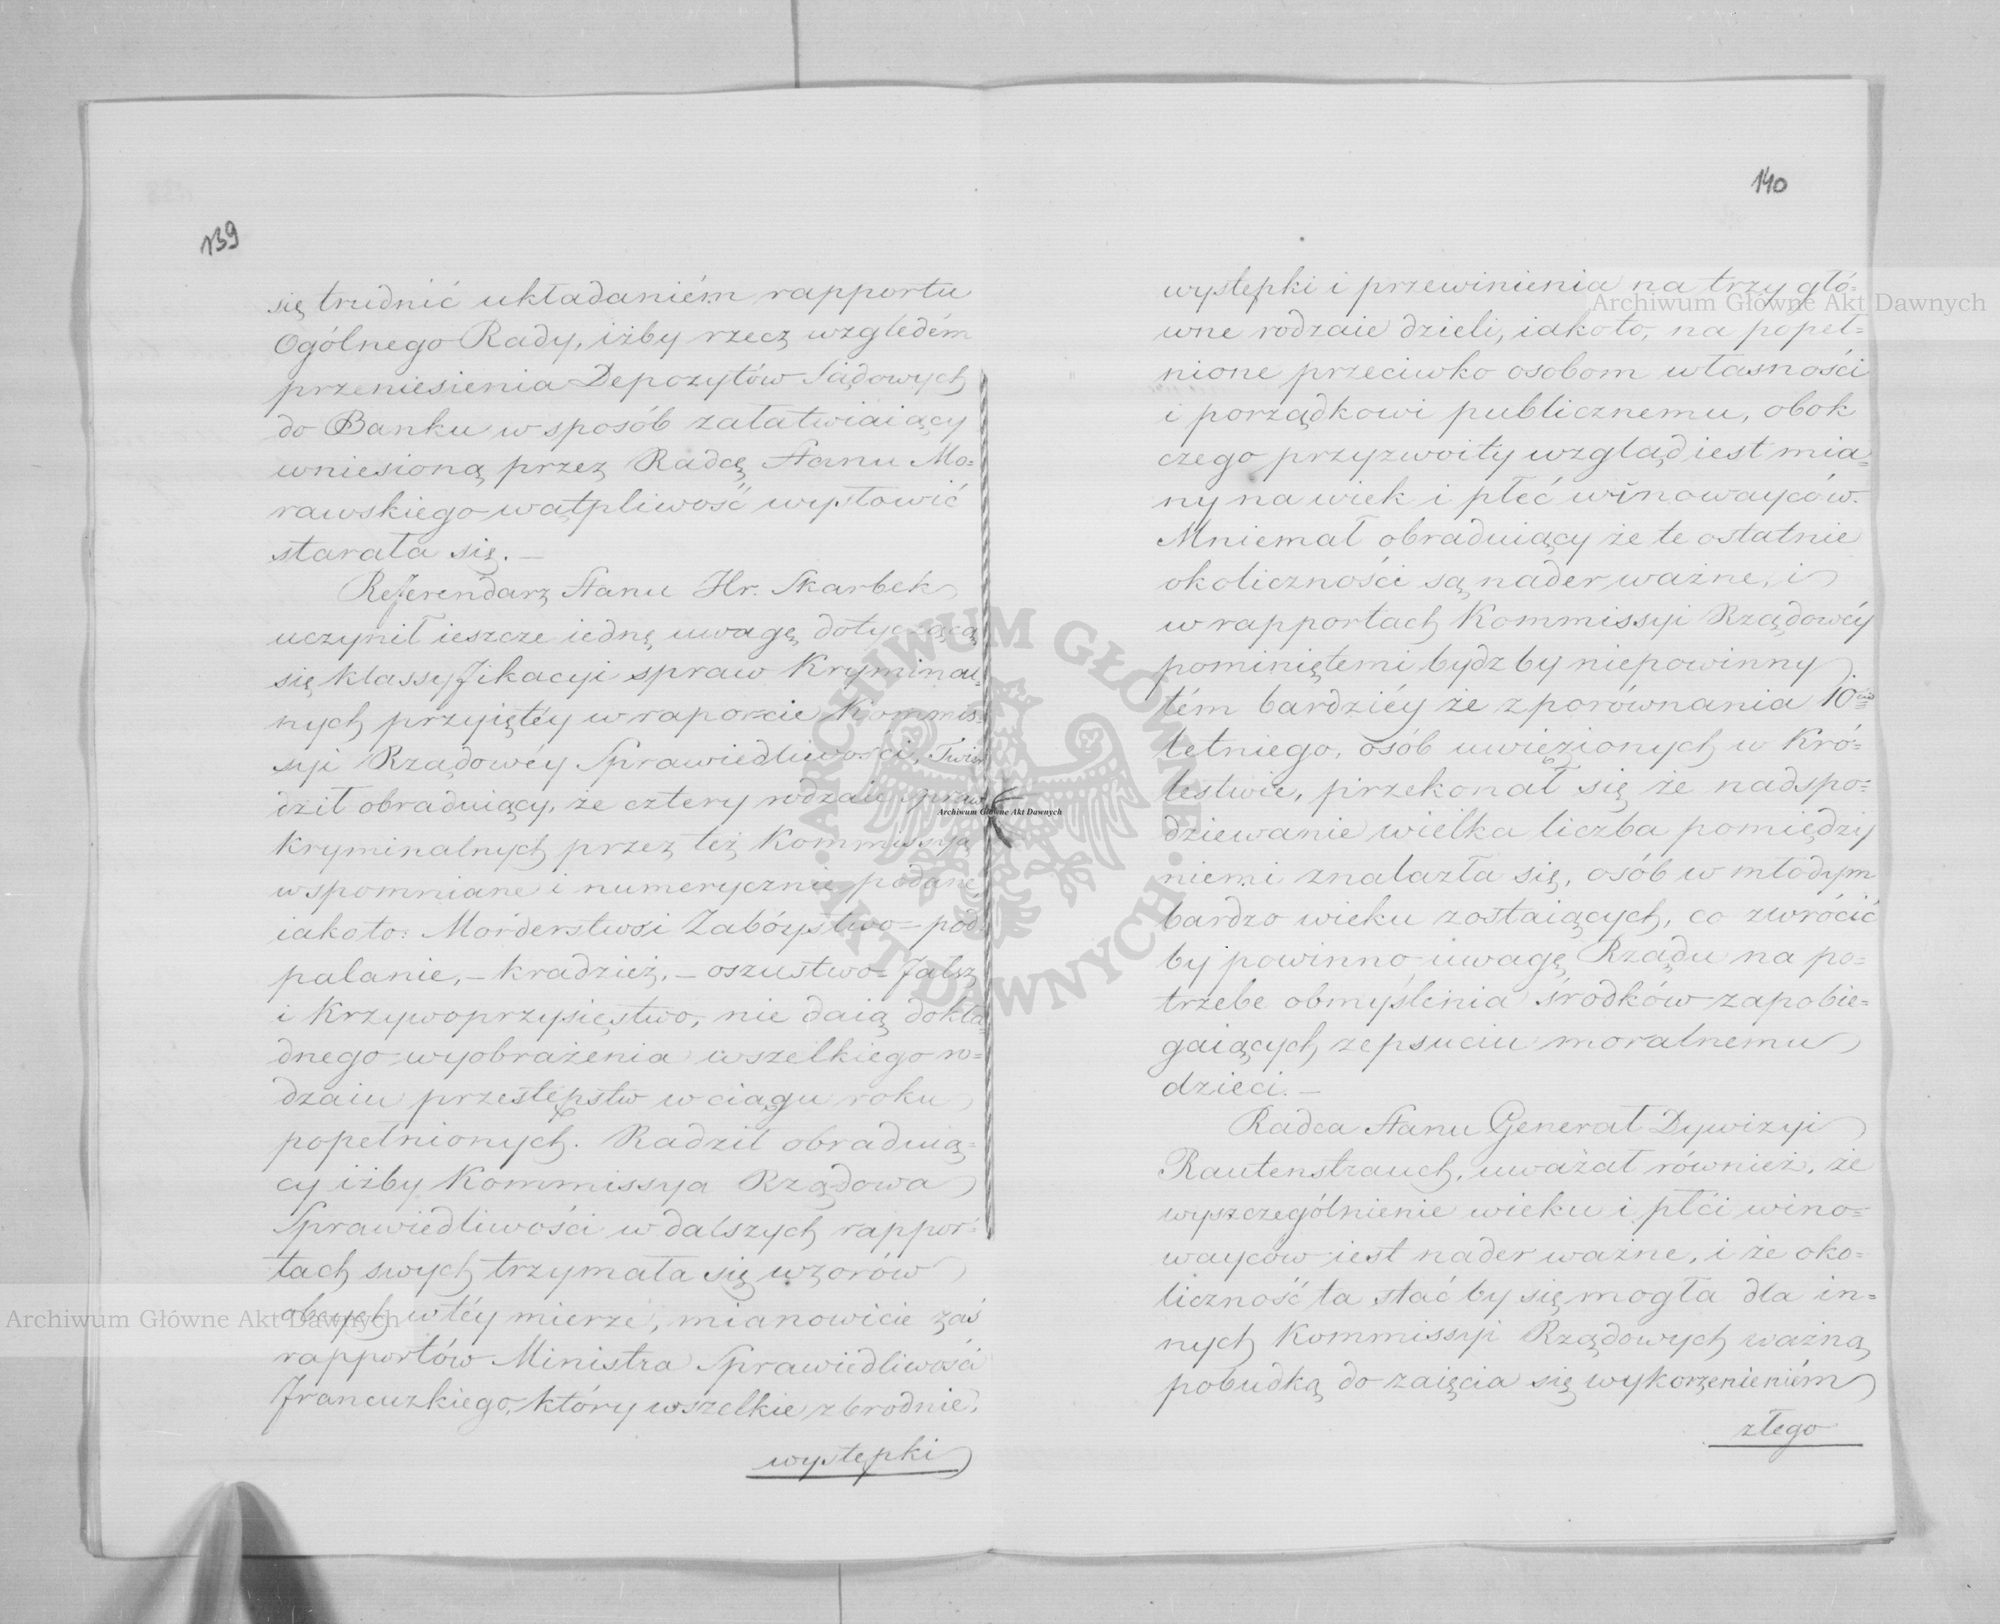 139
się trudnić układaniém rapportu
Ogólnego Rady, iżby rzecz względém
przeniesienia Depozytów Sądowych
do Banku w sposób załatwiaiący
wniesioną przez Radcę Stanu Mo=
rawskiego wątpliwość wysłowić
starała się. —
Referendarz Stanu Hr. Skarbek
uczynił ieszcze iednę uwagę dotyczącą
się klassyfikacyi spraw Kryminal=
nych przyiętéy w raporcie Kommis=
syi Rządowéy Sprawiedliwości. Twier
dził obraduiący, że cztery rodzaie spraw
kryminalnych przez też Kommissyą
wspomniane i numerycznie podane,
iakoto: Morderstwo i Zabóystwo = pod=
palanie, — kradzież, — oszustwo = fałsz
i Krzywoprzysięstwo, nie daią dokła=
dnego wyobrażenia wszelkiego ro=
dzaiu przestępstw w ciągu roku
popełnionych. Radził obraduią=
cy iżby Kommissya Rządowa
Sprawiedliwości w dalszych rappor=
tach swych trzymała się wzorów
obcych w téy mierze, mianowicie zaś
rapportów Ministra Sprawiedliwości
francuzkiego, który wszelkie zbrodnie,
występki
140
występki i przewinienia na trzy głó=
wne rodzaie dzieli, iakoto, na popeł=
nione przeciwko osobom własności
i porządkowi publicznemu, obok
czego przyzwoity wzgląd iest mia=
ny na wiek i płeć winowayców.
Mniemał obraduiący że te ostatnie
okoliczności są nader ważne, i
w rapportach Kommissyi Rządowéy
pominiętemi bydz by niepowinny
tém bardziéy że z porównania 10cio
letniego, osób uwięzionych w Kró=
lestwie, przekonał się że nadspo=
dziewanie wielka liczba pomiędzy
niemi znalazła się, osób w młodym
bardzo wieku zostaiących, co zwrócić
by powinno uwagę Rządu na po=
trzebe obmyślenia środków zapobie=
gaiących zepsuciu moralnemu
dzieci. —
Radca Stanu Generał Dywizyi
Rautenstrauch, uważał również, że
wyszczególnienie wieku i płci wino=
wayców iest nader ważne, i że oko=
liczność ta stać by się mogła dla in=
nych Kommissyi Rządowych ważną
pobudką do zaięcia się wykorzenieniém
złego
Archiwum Główne Akt Dawnych
Archiwum Główne Akt Dawnych
Archiwum Główne Akt Dawnych
ARCHIWUM GŁÓWNE AKT DAWNYCH